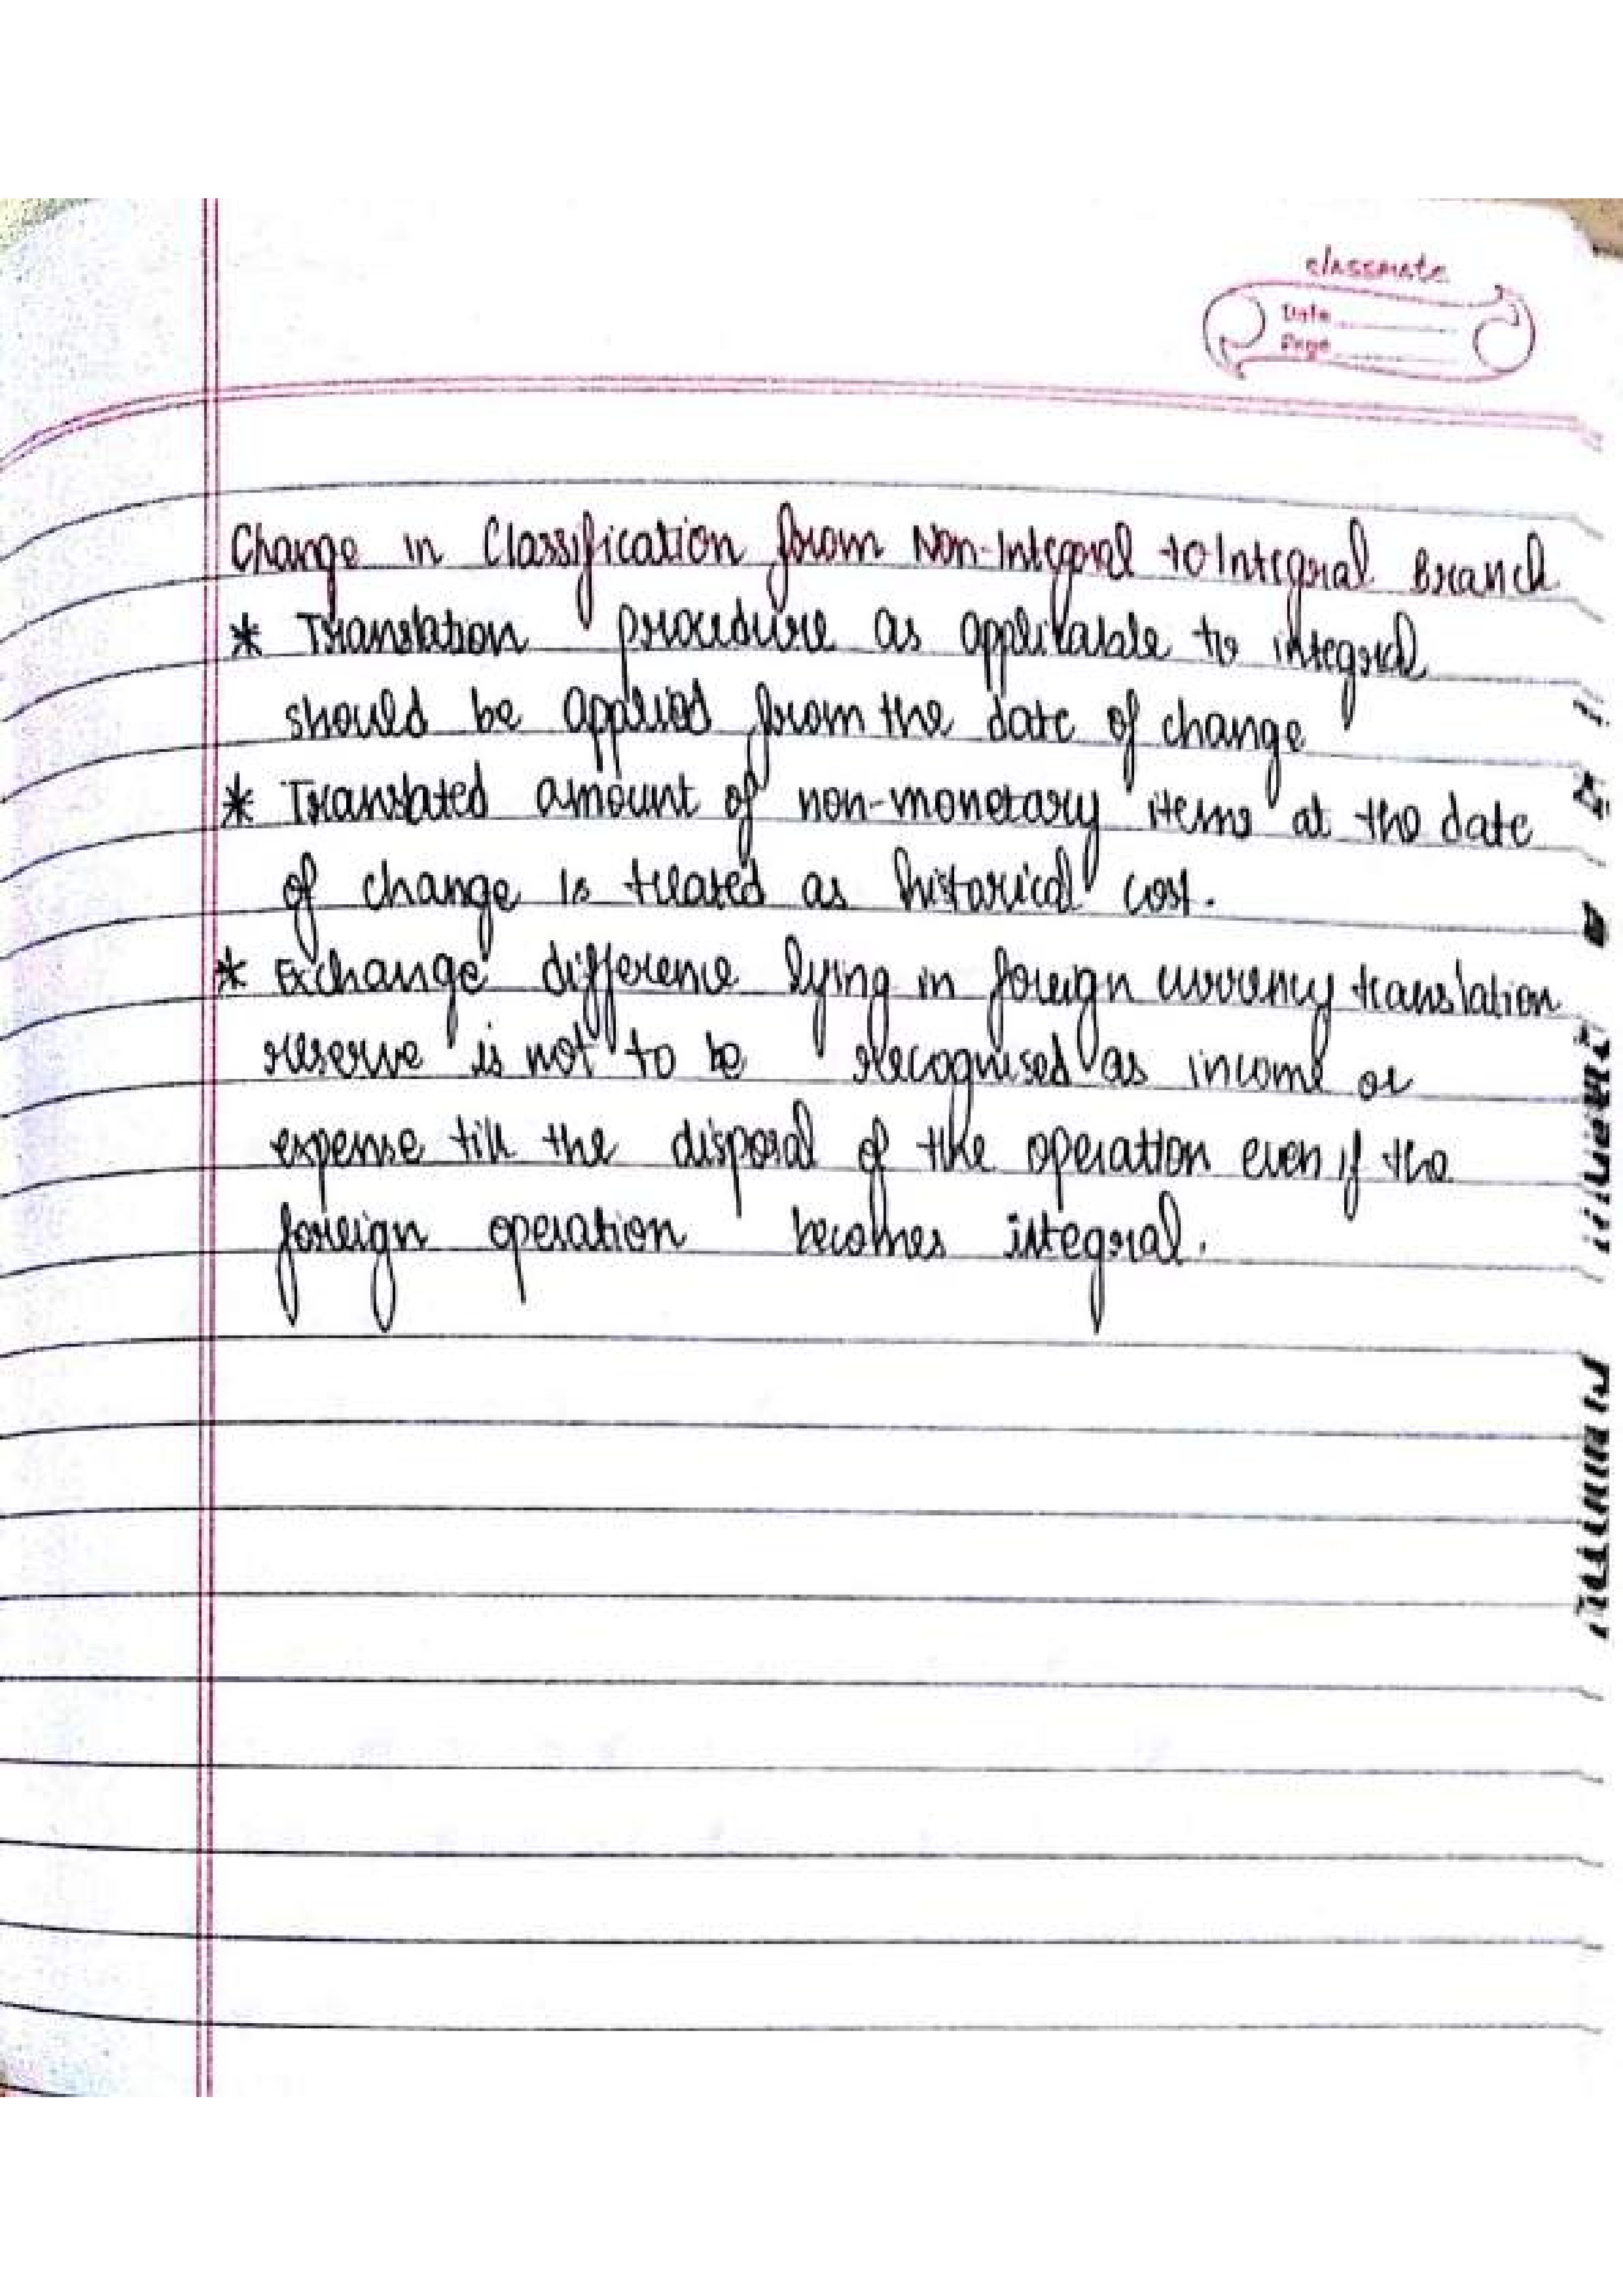 classmate
Date
Page
Change in Classification from Non-Integral to Integral Branch
* Translation procedure as applicable to integral
should be applied from the date of change
* Translated amount of non-monetary items at the date
of change is treated as historical cost.
* Exchange difference lying in foreign currency translation
reserve is not to be recognised as income or
expense till the disposal of the operation even if the
foreign operation becomes integral.